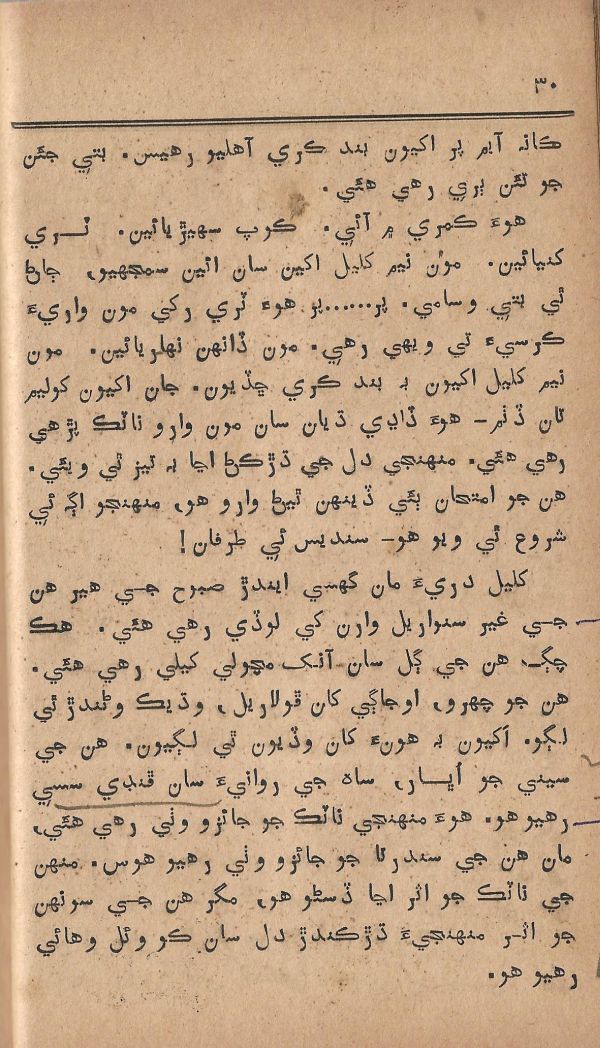 ۳۰
ڪانہ آيم پر اکيون بند ڪري آهليو رهيس. بتي جئن
جو تئن ٻري رهي هئي.
هوءَ ڪمري ۾ آئي. ڪوپ سهيڙيائين. ٽري
کنيائين. مون نيم کليل اکين سان ائين سمجهيو، ڄاڻ
ٿي بتي وسامي. پر......پر هوءَ ٽري رکي مون واريءَ
ڪرسيءَ تي ويهي رهي. مون ڏانهن نهاريائين. مون
نيم کليل اکيون بہ بند ڪري ڇڏيون. جان اکيون کوليم
تان ڏٺم- هوءَ ڏاڍي ڌيان سان مون وارو ناٽڪ پڙهي
رهي هئي. منهنجي دل جي ڌڙڪڻ اڃا بہ تيز ٿي ويئي.
هن جو امتحان ٻئي ڏينهن ٿيڻ وارو هو، منهنجو اڳ ئي
شروع ٿي ويو هو- سنديس ئي طرفان!
کليل دريءَ مان گهسي ايندڙ صبوح جي هير هن
جي غير سنواريل وارن کي لوڏي رهي هئي. هڪ
چڳ، هن جي ڳل سان آنک مچولي کيلي رهي هئي.
هن جو چهرو، اوجاڳي کان ڦولاريل، وڌيڪ وڻندڙ ٿي
لڳو. اکيون بہ هونءَ کان وڏيون ٿي لڳيون. هن جي
سيني جو اُڀار، ساہ جي روانيءَ سان ڦنڊي سسي
رهيو هو. هوءَ منهنجي ناٽڪ جو جائزو وٺي رهي هئي،
مان هن جي سندرتا جو جائزو وٺي رهيو هوس. منهن
جي ناٽڪ جو اثر اڃا ڏسڻو هو، مگر هن جي سونهن
جو اثر منهنجيءَ ڌڙڪندڙ دل سان ڪو وئل وهائي
رهيو هو.